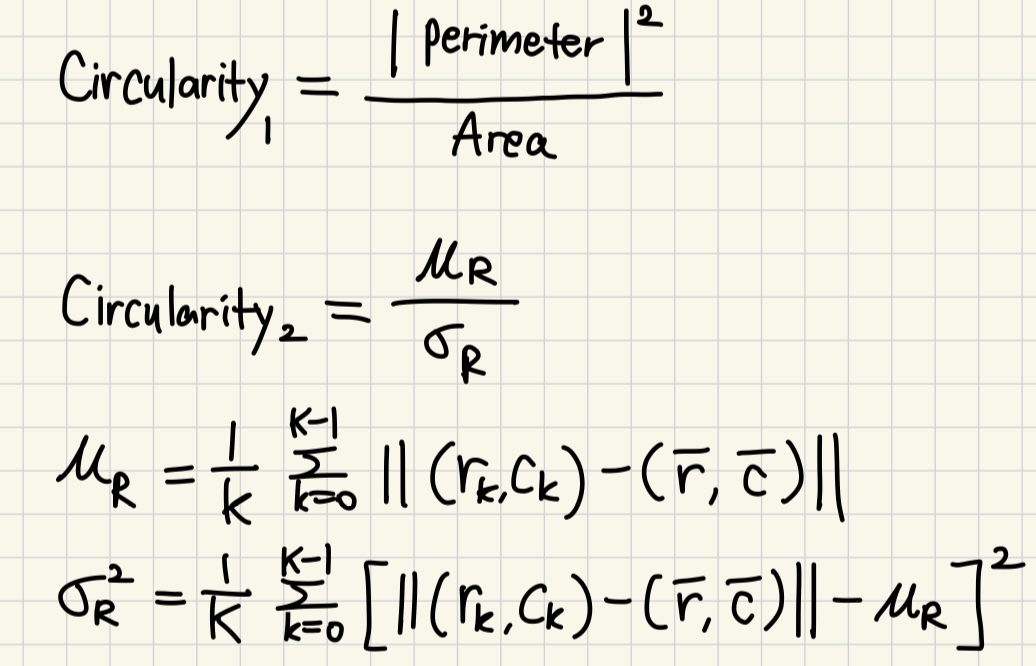 Circularity₁ = |Perimeter|² / Area
Circularity₂ = μ_R / σ_R
μ_R = 1/K ∑_{k=0}^{K-1} ||(r_k, c_k) - (r̄, c̄)||
σ_R² = 1/K ∑_{k=0}^{K-1} [||(r_k, c_k) - (r̄, c̄)|| - μ_R]²